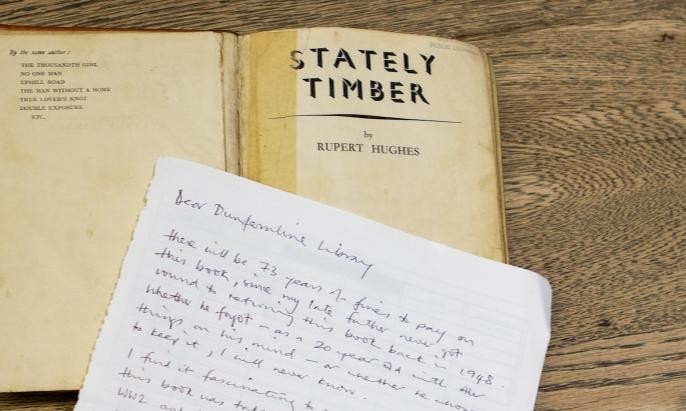 By the same author:
THE THOUSANDTH GIRL
NO ONE MAN
UPHILL ROAD
THE MAN WITHOUT A HOME
TRUE LOVER'S KNOT
DOUBLE EXPOSURE
ETC.
PUBLIC
STATELY
TIMBER
by
RUPERT HUGHES
Dear Dunfermline Library
there will be 73 years of fines to pay on
this book, since my late father never got
round to returning this book back in 1948.
Whether he forgot - as a 20 year old with other
things on his mind - or whether he chose
to keep it, I will never know.
I find it fascinating to
this book was
WW2